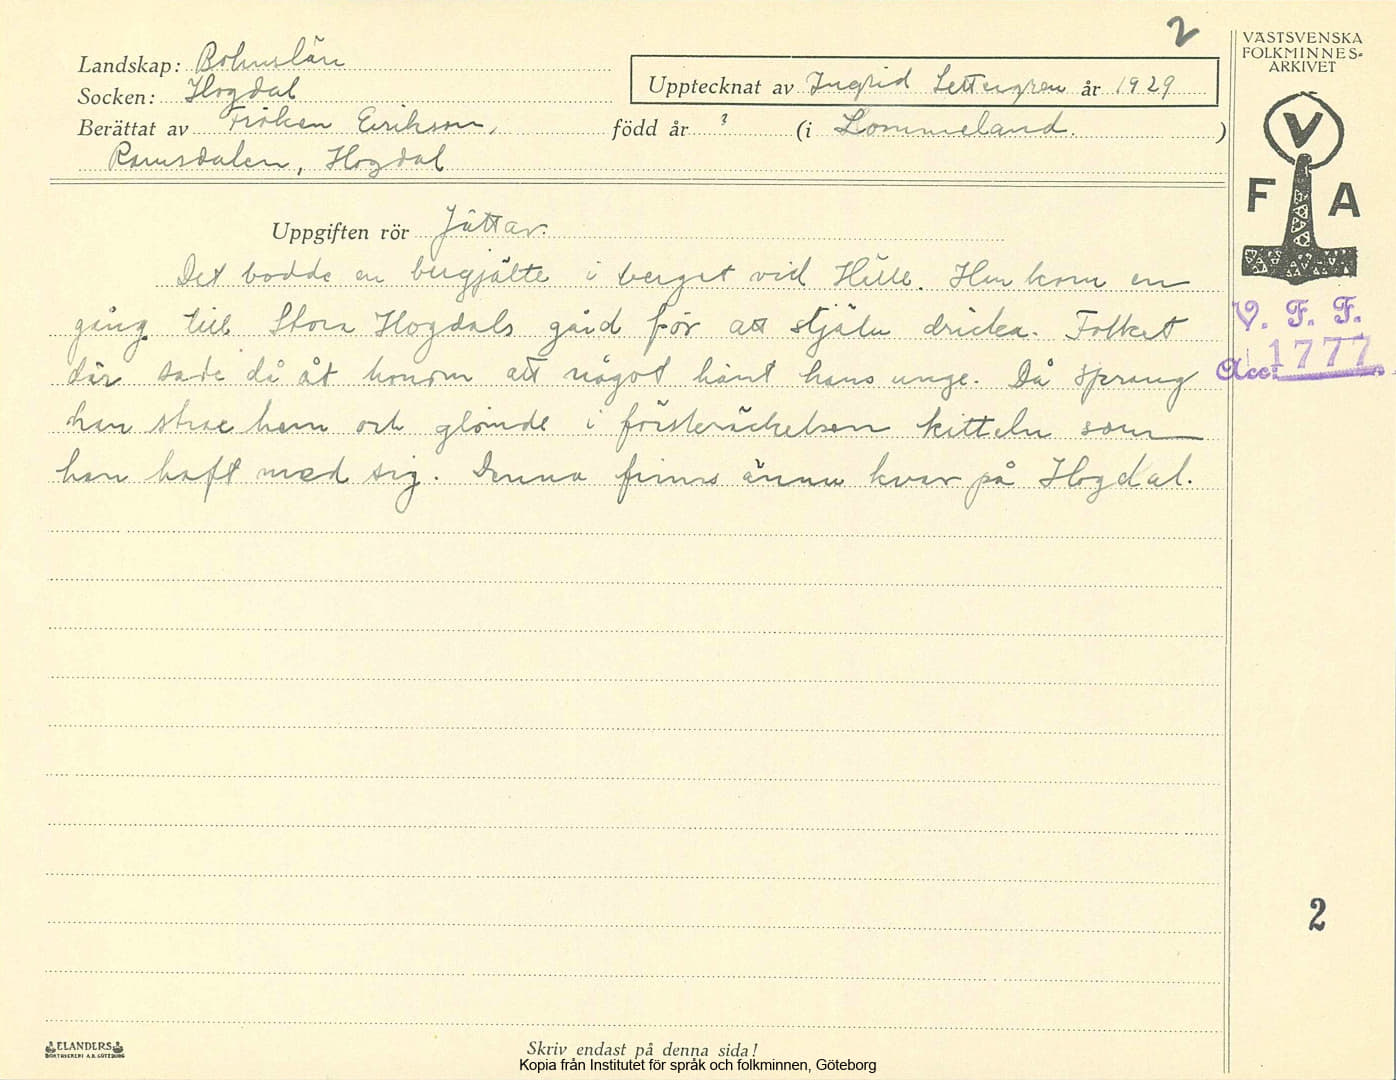 2
Landskap: Bohuslän
Socken: Hogdal
Upptecknat av Ingrid Settergren år 1929
Berättat av Fröken Erikson, född år ? (i Lommeland.)
Ramsdalen, Hogdal
VÄSTSVENSKA
FOLKMINNES-
ARKIVET
V
F A
V. F. F.
Acc: 1777
Uppgiften rör Jättar.
Det bodde en bergjätte i berget vid Hälle. Han kom en
gång till Stora Hogdals gård för att stjäla dricka. Folket
där sade då åt honom att något hänt hans unge. Då sprang
han strax hem och glömde i förskräckelsen kitteln som
han haft med sig. Denna finns ännu kvar på Hogdal.
2
ELANDERS
BOKTRYCKERI A.B. GÖTEBORG
Skriv endast på denna sida!
Kopia från Institutet för språk och folkminnen, Göteborg